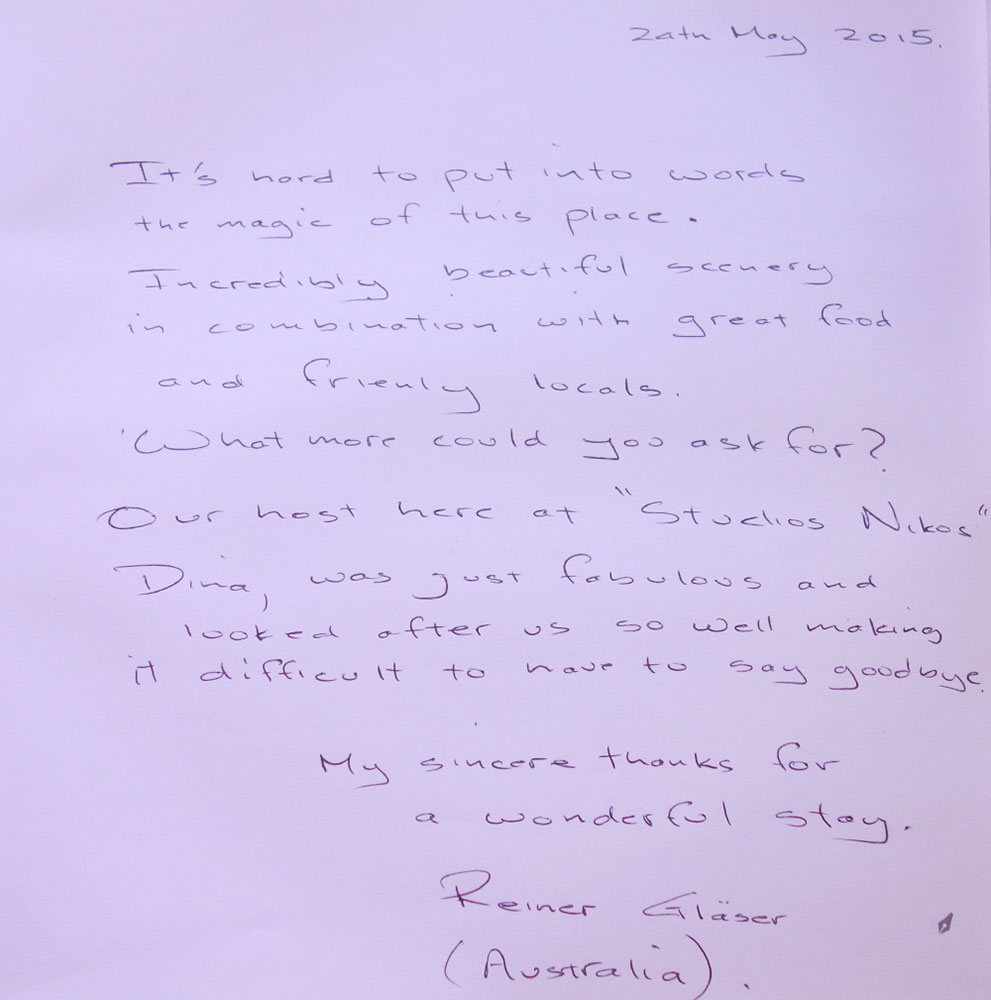 24th May 2015.
It's hard to put into words
the magic of this place.
Incredibly beautiful scenery
in combination with great food
and frienly locals.
What more could you ask for?
Our host here at "Studios Nikos"
Dina, was just fabulous and
looked after us so well making
it difficult to have to say goodbye.
My sincere thanks for
a wonderful stay.
Reiner Gläser
(Australia).